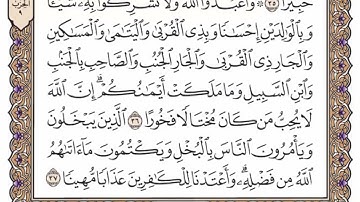 خَبِيرًا ٣٥ ۞ وَاعْبُدُوا اللَّهَ وَلَا تُشْرِكُوا بِهِ شَيْئًا
وَبِالْوَالِدَيْنِ إِحْسَانًا وَبِذِي الْقُرْبَىٰ وَالْيَتَامَىٰ وَالْمَسَاكِينِ
وَالْجَارِ ذِي الْقُرْبَىٰ وَالْجَارِ الْجُنُبِ وَالصَّاحِبِ بِالْجَنْبِ
وَابْنِ السَّبِيلِ وَمَا مَلَكَتْ أَيْمَانُكُمْ ۗ إِنَّ اللَّهَ
لَا يُحِبُّ مَن كَانَ مُخْتَالًا فَخُورًا ٣٦ الَّذِينَ يَبْخَلُونَ
وَيَأْمُرُونَ النَّاسَ بِالْبُخْلِ وَيَكْتُمُونَ مَا آتَاهُمُ
اللَّهُ مِن فَضْلِهِ ۗ وَأَعْتَدْنَا لِلْكَافِرِينَ عَذَابًا مُّهِينًا ٣٧
الحزب
٩